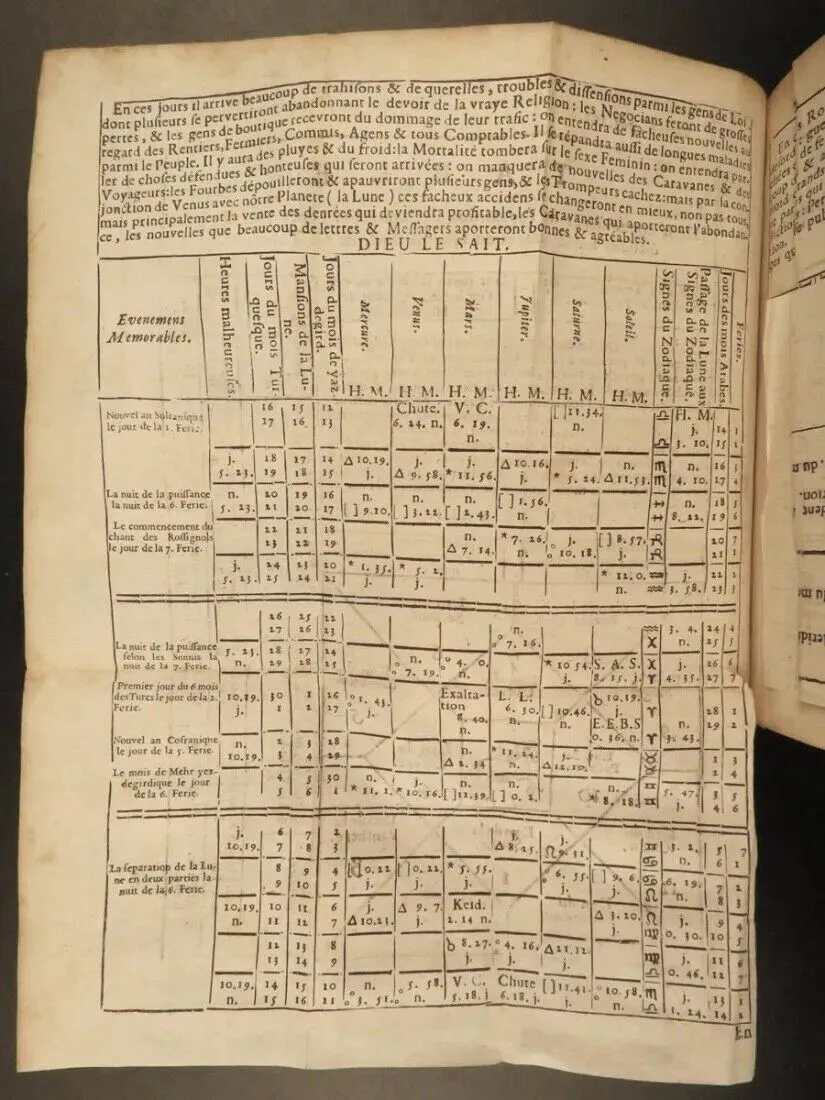 En ces jours il arrive beaucoup de trahisons & de querelles, troubles & dissensions parmi les gens de Loi,
dont plusieurs se pervertiront abandonnant le devoir de la vraye Religion : les Negocians feront de grosses
pertes, & les gens de boutique recevront du dommage de leur trafic : on entendra de facheuses nouvelles au
regard des Rentiers, Fermiers, Commis, Agens & tous Comptables. Il se répandra aussi de longues maladies
parmi le Peuple. Il y aura des pluyes & du froid: la Mortalité tombera sur le sexe Feminin : on entendra par-
ler de choses défendues & honteuses qui seront arrivées : on manquera de nouvelles des Caravanes & des
Voyageurs: les Fourbes dépouilleront & apauvriront plusieurs gens, & les Trompeurs cachez: mais par la con-
jonction de Venus avec nôtre Planete ( la Lune ) ces facheux accidens se changeront en mieux, non pas tous,
mais principalement la vente des denrées qui deviendra profitable, les Caravanes qui aporteront l'abondan-
ce, les nouvelles que beaucoup de lettres & Messagers aporteront bonnes & agréables.
DIEU LE SAIT.
Evenemens Memorables.
Heures malheureuses.
Jours du mois Turquesque.
Mansions de la Lune.
Jours du mois de Yazdegird.
Mercure. H. M.
Venus. H. M.
Mars. H. M.
Jupiter. H. M.
Saturne. H. M.
Soleil. H. M.
Signes du Zodiaque.
Passage de la Lune aux Signes du Zodiaque. H. M.
Jours des mois Arabes.
Feries.
Nouvel an Sultanique 16 15 12 Chute. V. C. [ ] 11.34. ♎ j. 14 1
le jour de la 1. Ferie. 17 16 13 6. 24. n. 6. 19. n. n. ♎ 3. 10. 15 2
j. 18 17 14 Δ 10.19. j. j. Δ 10.16. j. n. ♏ n. 16 3
5. 23. 19 18 15 j. Δ 9. 58. * 11. 56. j. * 5. 24. Δ 11.53. ♏ 4. 10. 17 4
La nuit de la puissance n. 20 19 16 n. n. n. [ ] 1. 56. 18 5
la nuit de la 6. Ferie. 5. 23. 21 20 17 [ ] 9.10. [ ] 3. 22. [ ] 2. 43. n. 8. 22. 19 6
Le commencement du 22 21 18 n. * 7. 26. j. [ ] 8. 57. 20 7
chant des Rossignols 23 22 19 Δ 7. 14. n. 10. 18. j. 21 1
le jour de la 7. Ferie.
j. 24 23 20 * 1. 35. * 5. 2. * 12. 0. ♒ j. 22 2
5. 23. 25 24 21 j. j. n. ♒ 3. 58. 23 3
26 25 22 ♒ 3. 4. 24 4
27 26 23 n. n. 25 5
La nuit de la puissance 5. 23. 28 27 24 n. 4. 0. 7. 16. * 10 54. S. A. S. j. 26 6
selon les Sunnis la n. 29 28 25 7. 19. n. j. 8. 15. j. ♈ 4. 35. 27 7
nuit de la 7. Ferie.
Premier jour du 6 mois 10.19. 30 1 26 1. 43. Exaltation L. L. [ ] 10.46. ♉ 10.19. ♈ 28 1
des Turcs le jour de la 2. j. 1 2 27 j. 8. 40. n. 6. 30. n. n. j. n. 29 2
Ferie. E. E. B. S
Nouvel an Cosranique n. 2 3 28 n. * 11. 24. j. 0. 36. n. ♈ 3. 43. 1 3
le jour de la 5. Ferie. 10.19. 3 4 29 Δ 2. 34 n. Δ 12.10. ♉ 2 4
Le mois de Mehr yez- 4 5 30 n. j. n. n. n. ♊ 5. 47. 3 5
degirdique le jour 5 6 1 * 11. 1. * 10. 16. [ ] 12.39. [ ] 0. 2. * 8. 18. ♊ j. 4 6
de la 6. Ferie.
j. 6 7 2 j. j. ♊ 3. 2. 5 7
10.19. 7 8 3 Δ 8. 25. 9. 31. ♋ n. 6 1
La separation de la Lu- 8 9 4 [ ] 0.22 [ ] 0. 22. * 5. 55. 6. 55. [ ] 9. 6. ♋ 6. 19. 7 2
ne en deux parties la 9 10 5 j. j. j. j. j. ♌ n. 8 3
nuit de la 6. Ferie.
10.19. 10 11 6 j. Δ 9. 7. Keid. Δ 3. 20. ♌ j. 9 4
n. 11 12 7 Δ 10.23. j. 2. 14 n. j. ♍ 0. 30. 10 5
12 13 8 ♉ 8. 27. 4. 16. Δ 21.12. ♍ j. 11 6
13 14 9 j. j. j. ♎ 0. 46. 12 7
10.19. 14 15 10 n. 5. 58. V. C. Chute [ ] 11.41. 10. 58. ♏ j. 13 1
n. 15 16 11 3. 51. n. 5. 18. j 6. 18. j. j. n. 1. 24. 14 2
En